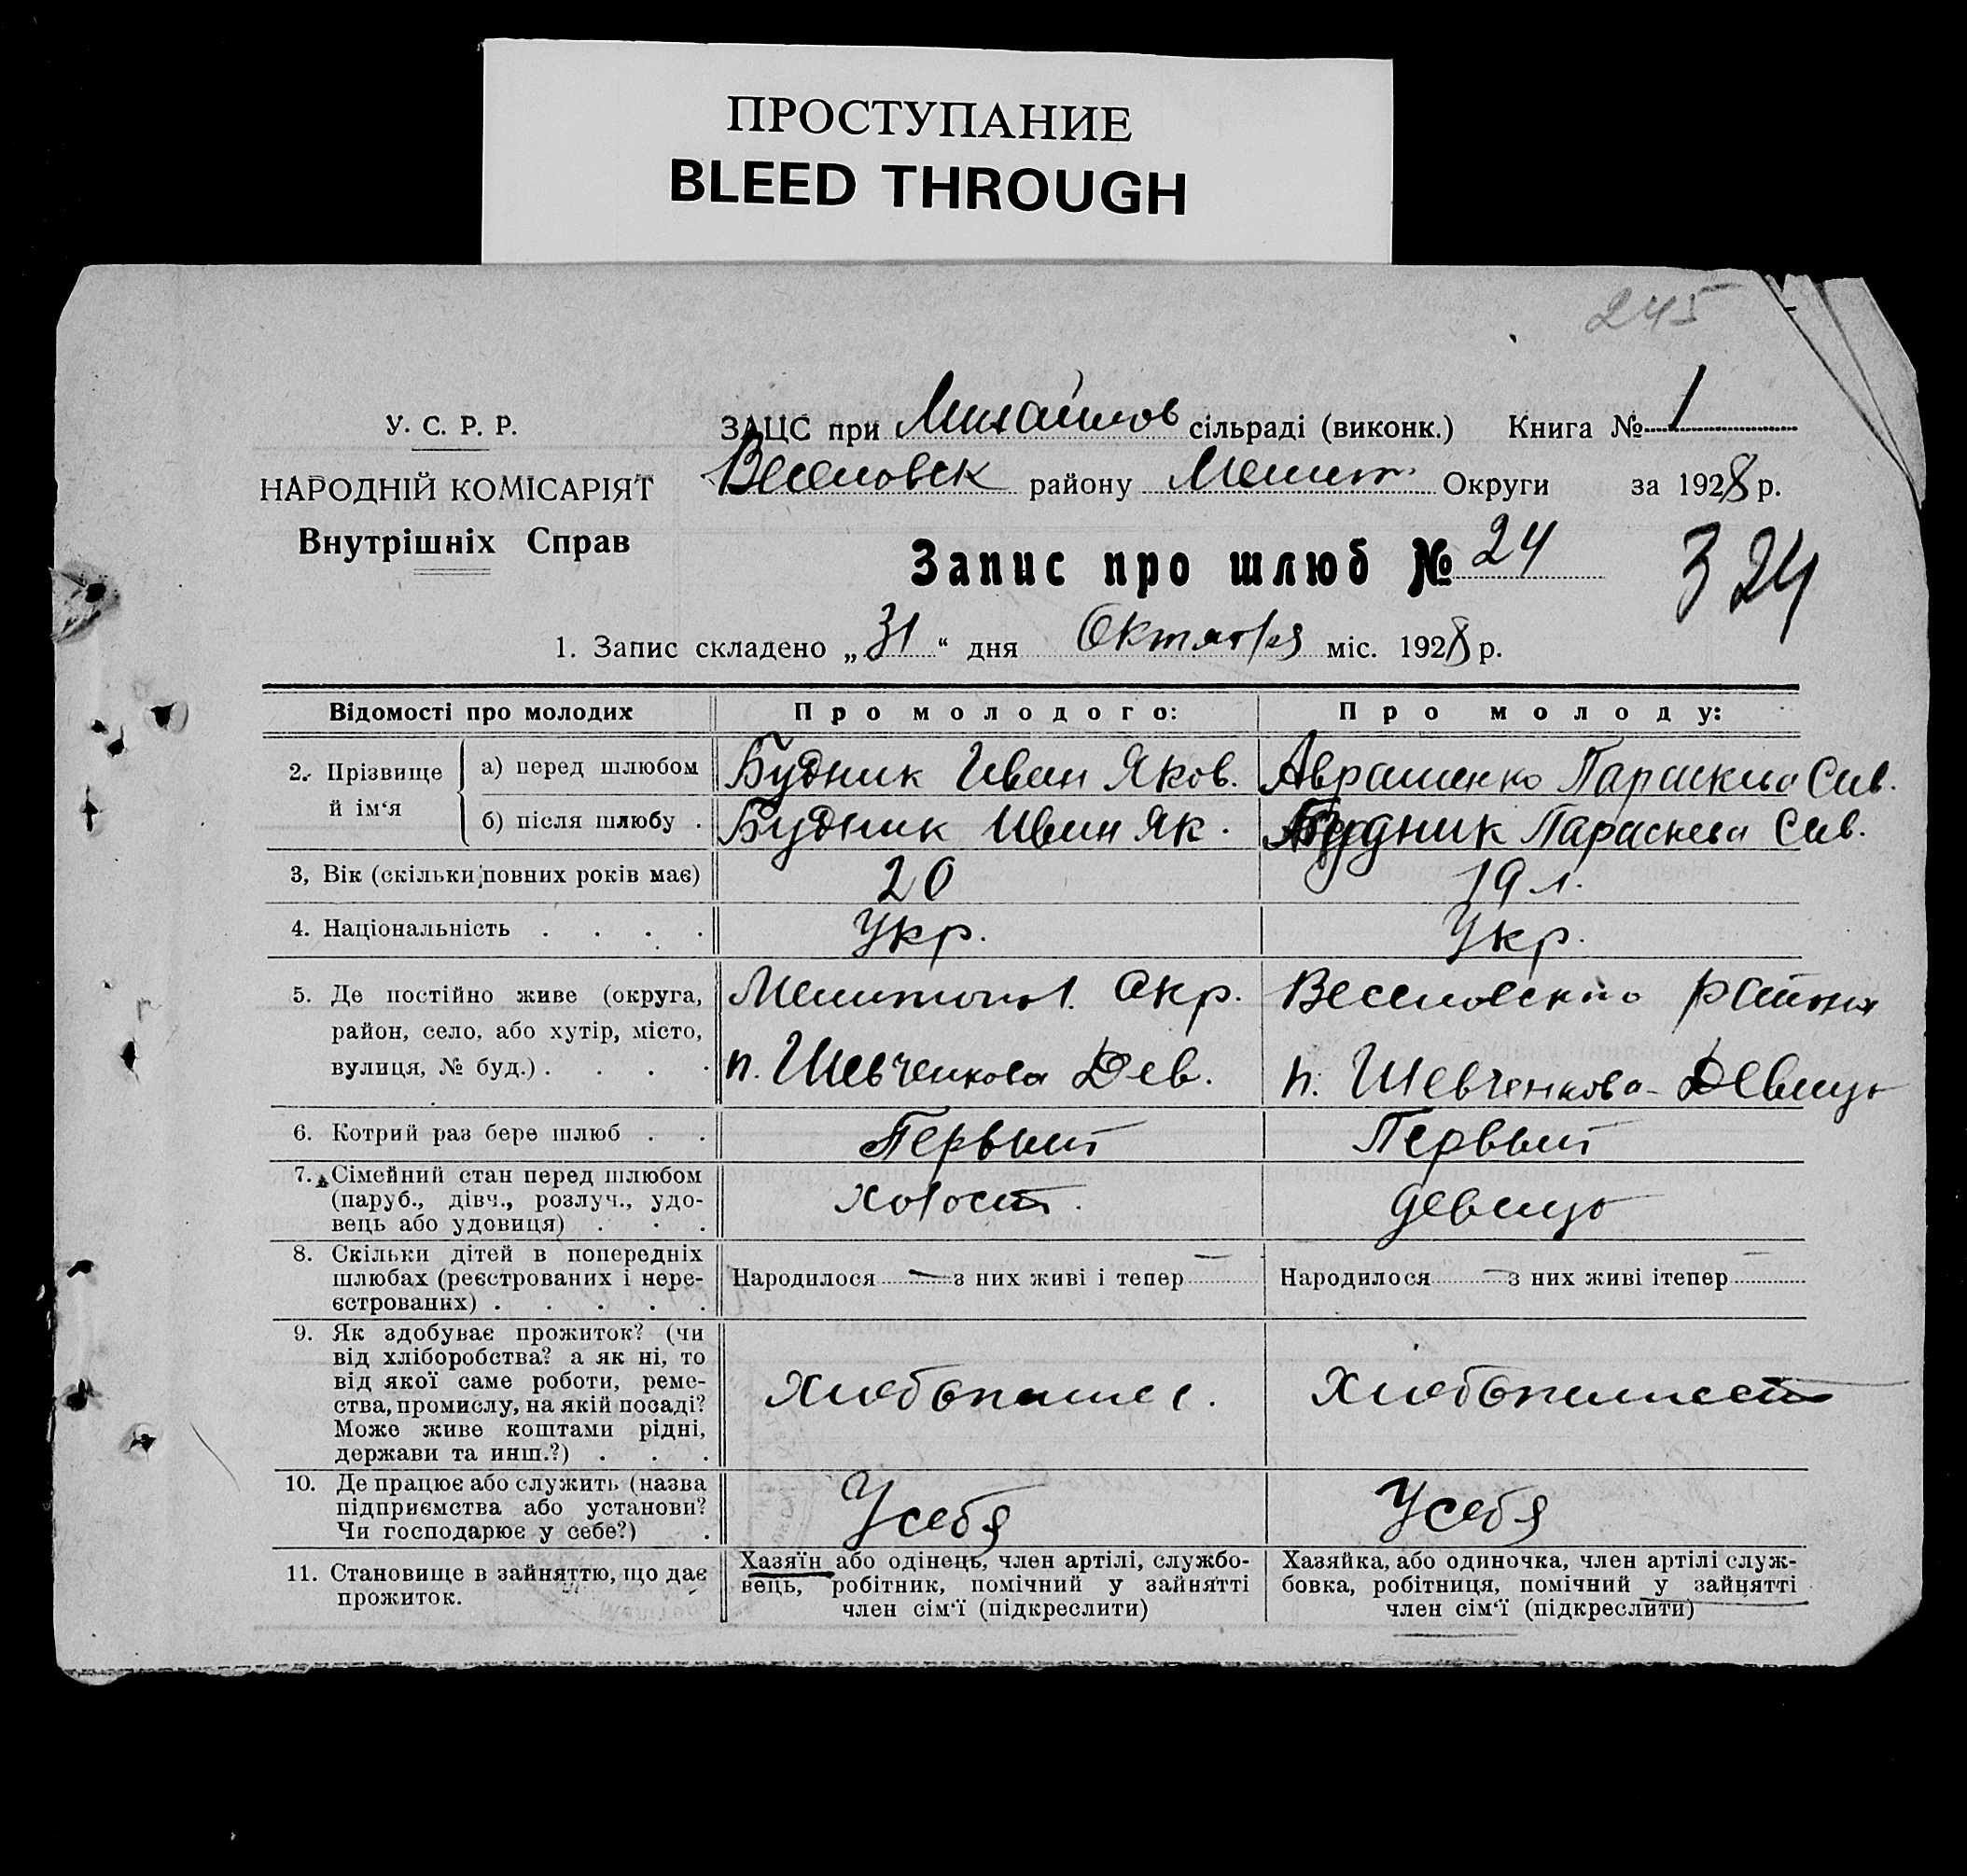 ПРОСТУПАНИЕ
BLEED THROUGH
245
У. С. Р. Р.
НАРОДНІЙ КОМІСАРІЯТ
Внутрішніх Справ
ЗАЦС при Михайлов сільраді (виконк.) Книга № 1
Веселовск району Мелит. Округи за 1928 р.
Запис про шлюб № 24
324
1. Запис складено „31“ дня Октября міс. 1928 р.
Відомості про молодих
Про молодого:
Про молоду:
2. Прізвище й ім‘я
а) перед шлюбом
Будник Иван Яков.
Аврашенко Параскева Сав.
б) після шлюбу .
Будник Иван Як.
Будник Параскева Сав.
3, Вік (скільки повних років має)
20
19 л.
4. Національність . . . .
Укр.
Укр.
5. Де постійно живе (округа,
район, село, або хутір, місто,
вулиця, № буд.) . . . .
Мелитопол. Окр.
п. Шевченкова Дев.
Веселовского района
п. Шевченкова-
6. Котрий раз бере шлюб . .
Первый
Первый
7. Сімейний стан перед шлюбом
(паруб., дівч., розлуч., удо-
вець або удовиця) . . .
холост.
девица
8. Скільки дітей в попередніх
шлюбах (реєстрованих і нере-
єстрованих) . . . . .
Народилося — з них живі і тепер —
Народилося — з них живі ітепер —
9. Як здобуває прожиток? (чи
від хліборобства? а як ні, то
від якої саме роботи, реме-
ства, промислу, на якій посаді?
Може живе коштами рідні,
держави та инш.?) . . .
Хлебопашес.
Хлебопашест
10. Де працює або служить (назва
підприємства або установи?
Чи господарює у себе?) .
У себя
У себя
11. Становище в зайняттю, що дає
прожиток.
Хазяїн або одінець, член артілі, службо-
вець, робітник, помічний у зайнятті
член сім‘ї (підкреслити)
Хазяйка, або одиночка, член артілі служ-
бовка, робітниця, помічний у зайнятті
член сім‘ї (підкреслити)